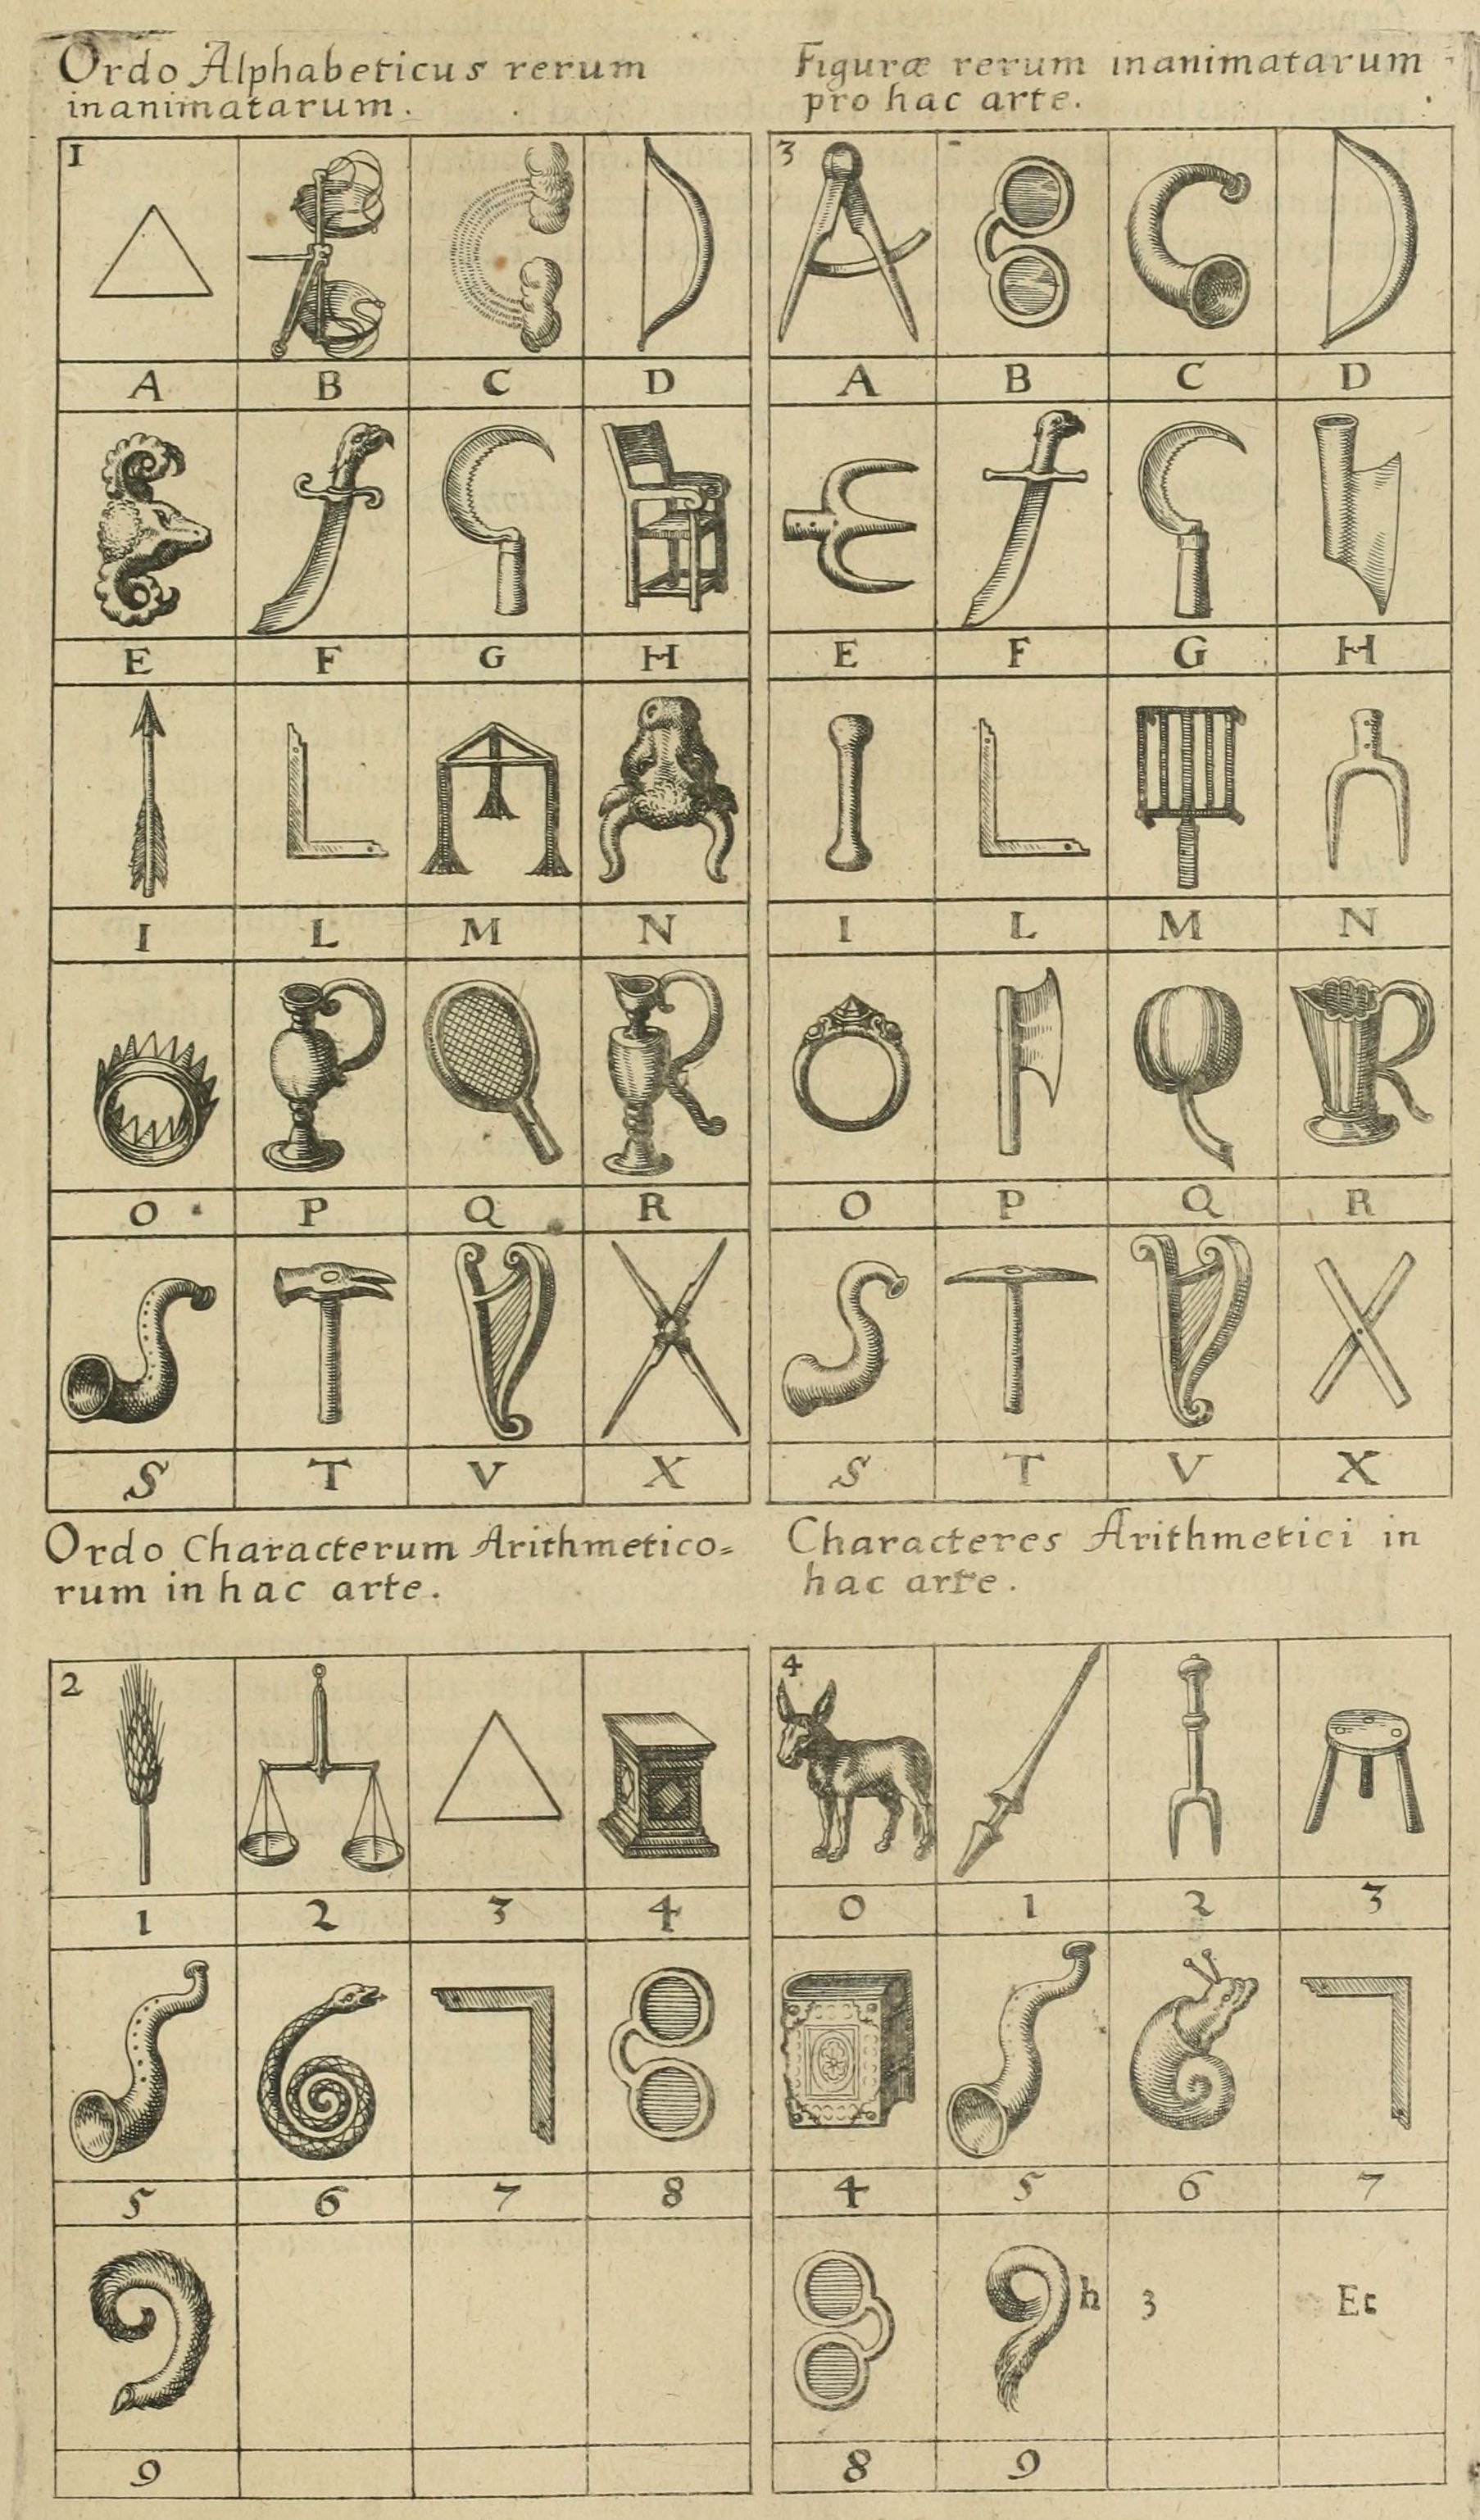 Ordo Alphabeticus rerum
inanimatarum.
1
A B C D
E F G H
I L M N
O P Q R
S T V X
Figuræ rerum inanimatarum
pro hac arte.
3
A B C D
E F G H
I L M N
O P Q R
S T V X
Ordo Characterum Arithmetico=
rum in hac arte.
2
1 2 3 4
5 6 7 8
9
Characteres Arithmetici in
hac arte.
4
0 1 2 3
4 5 6 7
h 3 Et
8 9